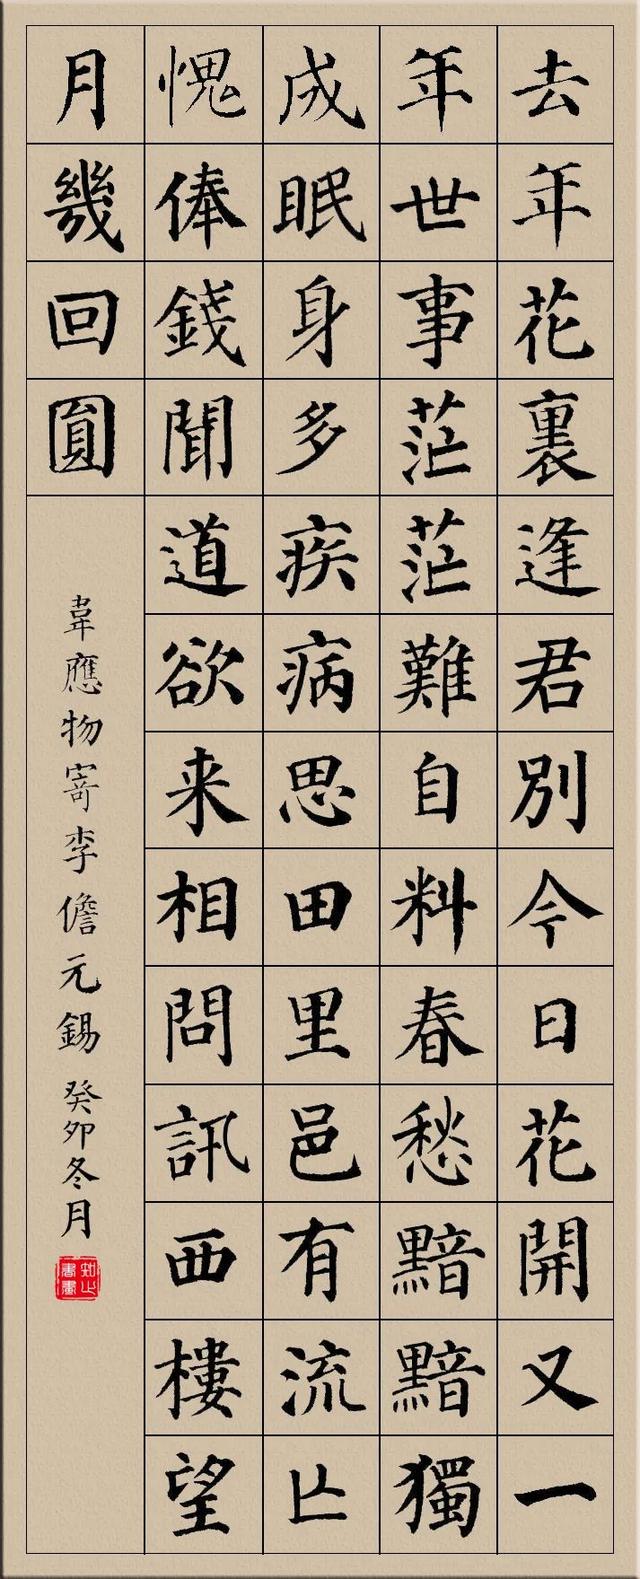 去年花裏逢君別今日花開又一
年世事茫茫難自料春愁黯黯獨
成眠身多疾病思田里邑有流亡
愧俸錢聞道欲来相問訊西樓望
月幾回圓
韋應物寄李儋元錫 癸卯冬月
知止書畫